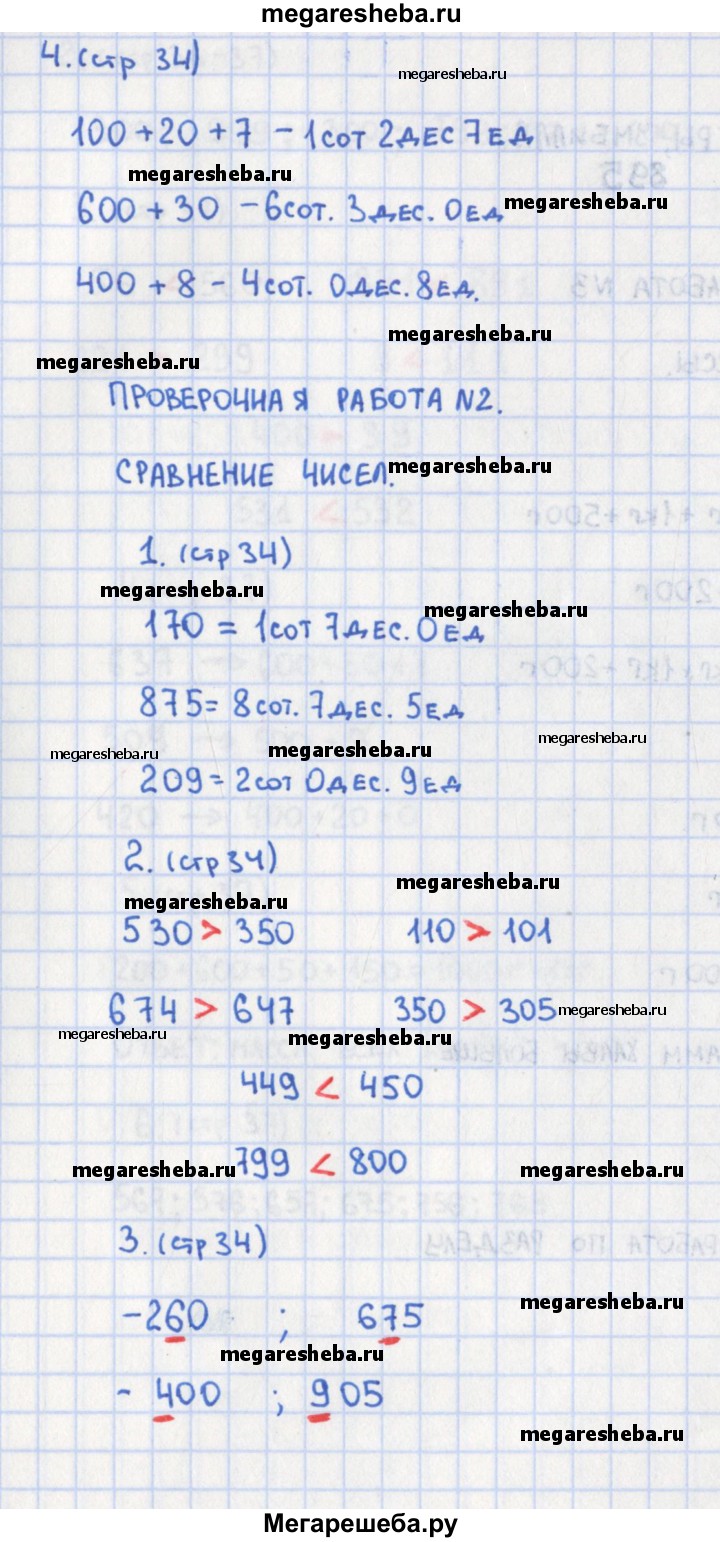 megaresheba.ru
4. (стр 34)
megaresheba.ru
100 + 20 + 7 - 1 сот 2 дес 7 ед
megaresheba.ru
600 + 30 - 6 сот. 3 дес. 0 ед
megaresheba.ru
400 + 8 - 4 сот. 0 дес. 8 ед.
megaresheba.ru
megaresheba.ru
ПРОВЕРОЧНАЯ РАБОТА N2.
СРАВНЕНИЕ ЧИСЕЛ.
megaresheba.ru
1. (стр 34)
megaresheba.ru
megaresheba.ru
170 = 1 сот 7 дес. 0 ед
875 = 8 сот. 7 дес. 5 ед
megaresheba.ru
megaresheba.ru
megaresheba.ru
209 = 2 сот 0 дес. 9 ед
2. (стр 34)
megaresheba.ru
megaresheba.ru
530 > 350 110 > 101
674 > 647 350 > 305
megaresheba.ru
megaresheba.ru
megaresheba.ru
449 < 450
799 < 800
megaresheba.ru
megaresheba.ru
3. (стр 34)
megaresheba.ru
- 260 ; 675
megaresheba.ru
- 400 ; 905
megaresheba.ru
Мегарешеба.ру